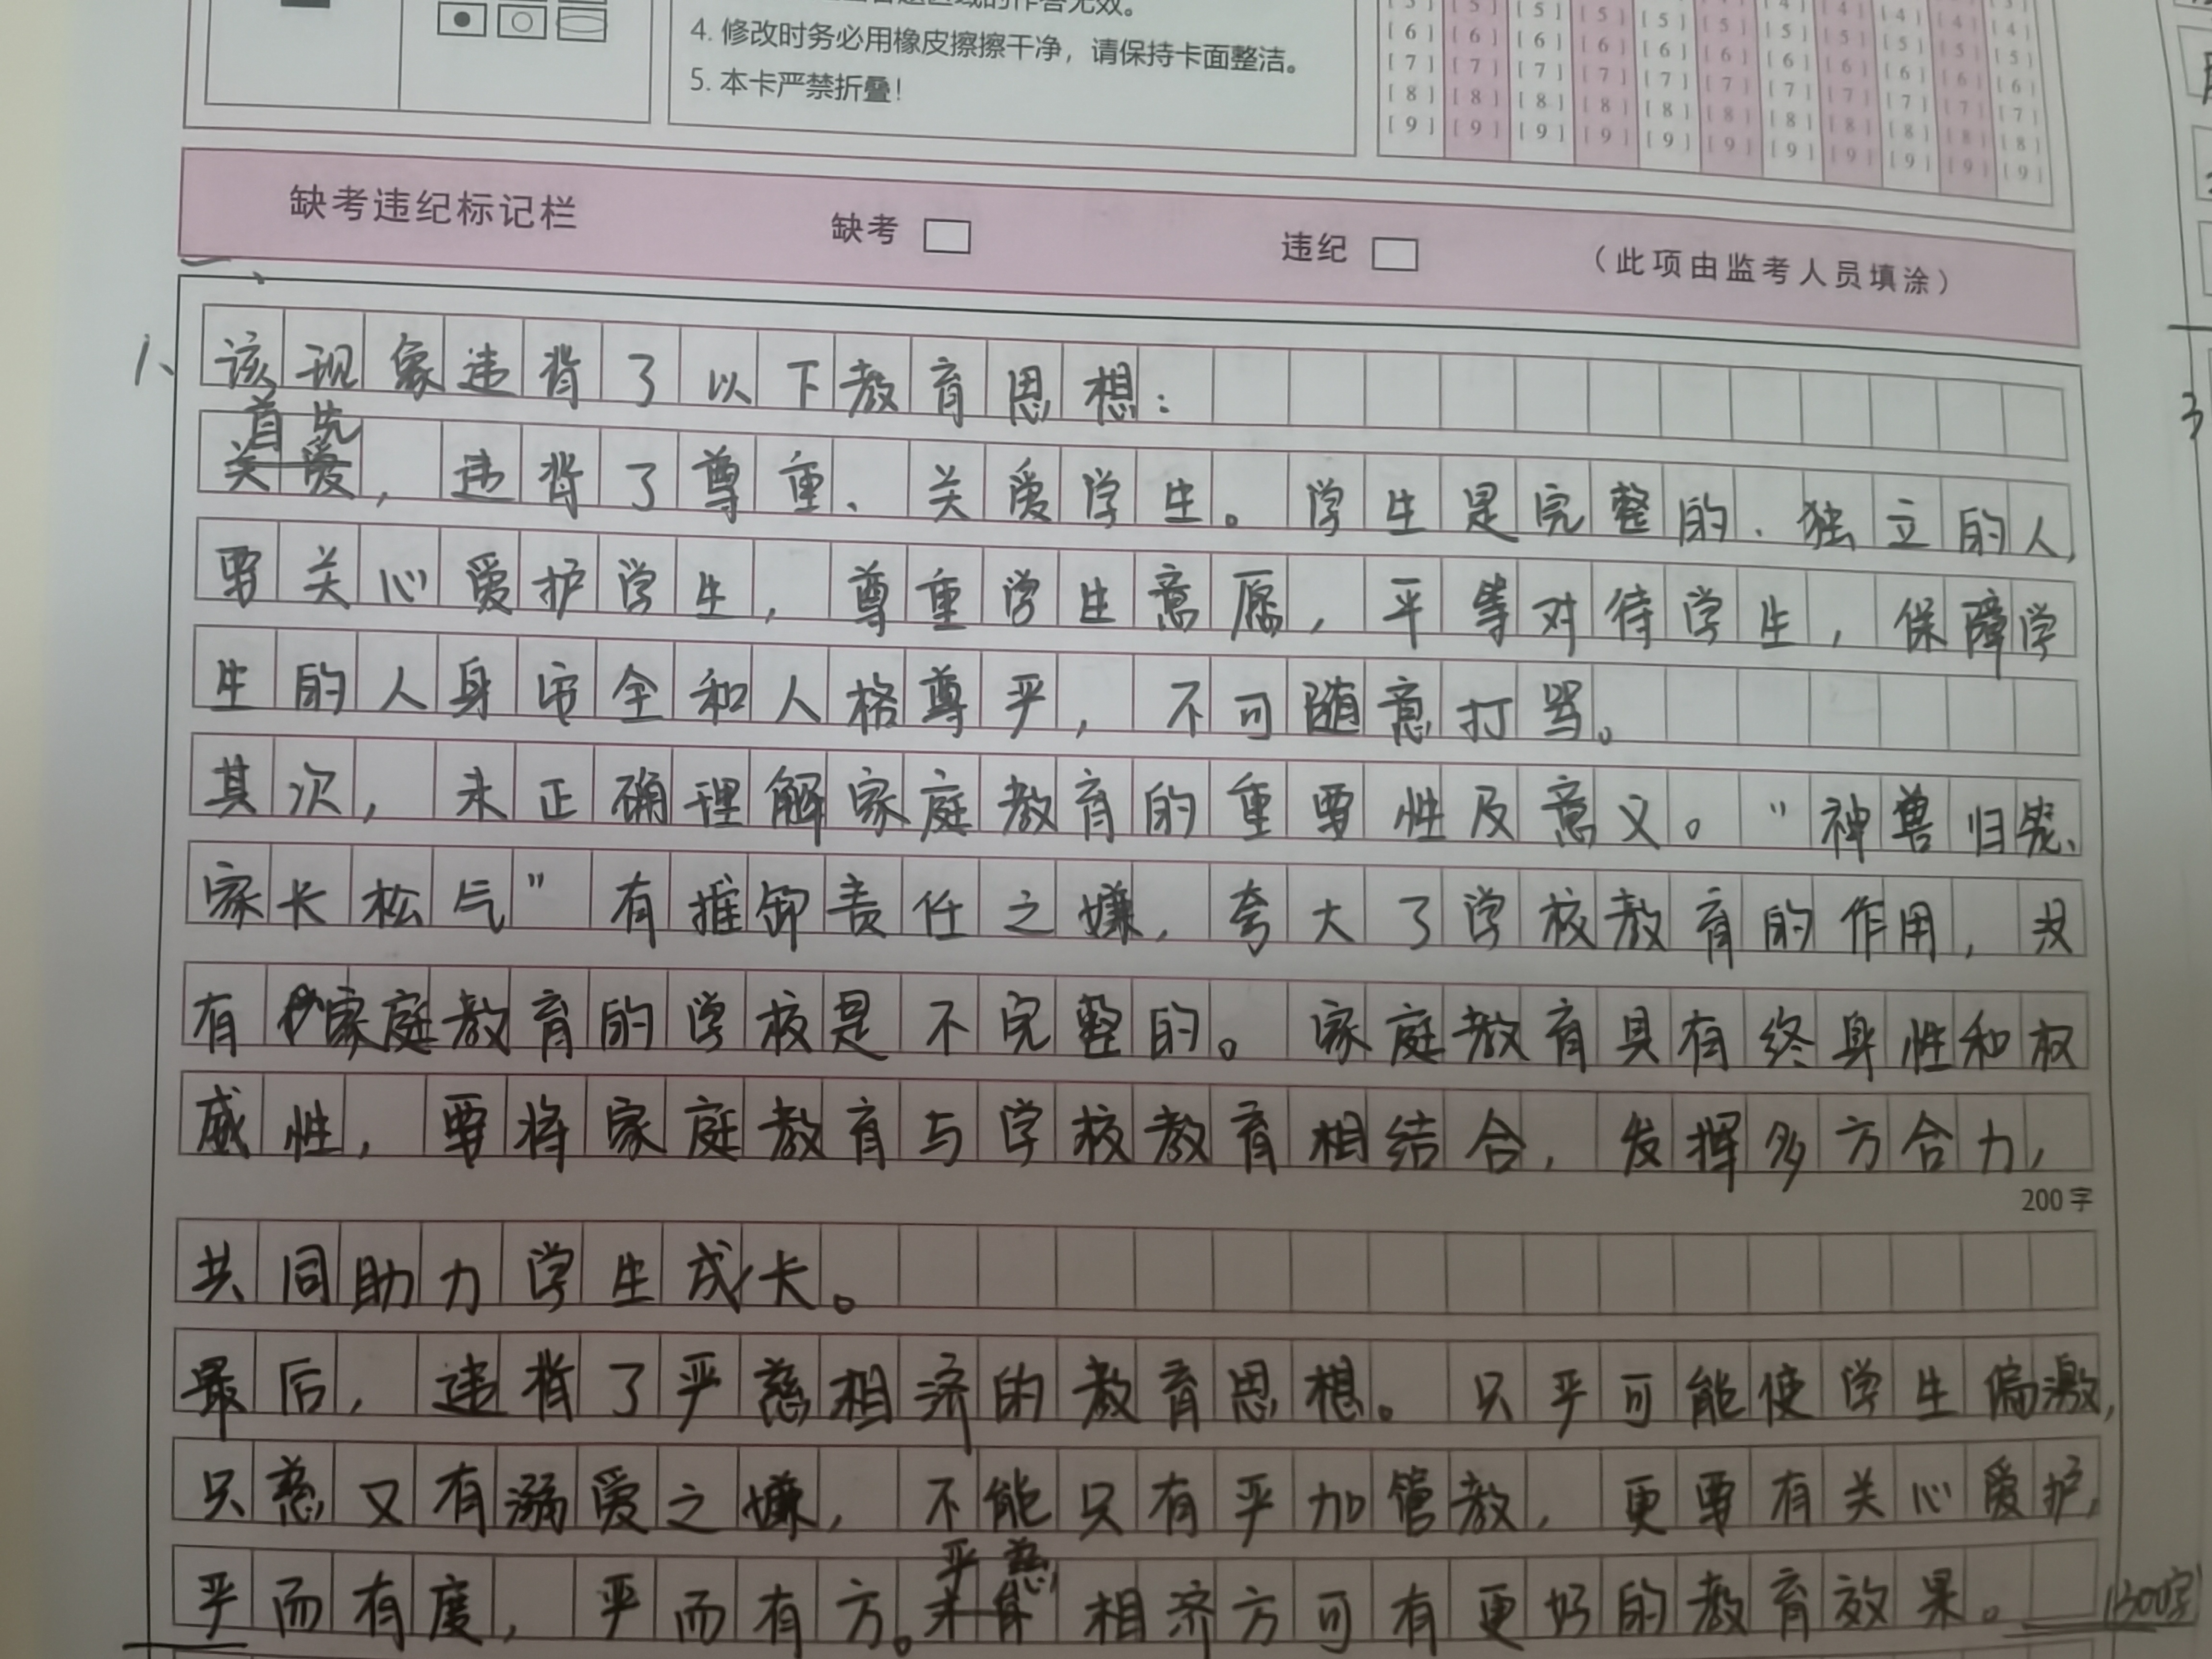 4. 修改时务必用橡皮擦擦干净，请保持卡面整洁。
5. 本卡严禁折叠！
[5] [5] [5] [5] [5] [5] [4] [4] [4] [4]
[6] [6] [6] [6] [6] [6] [5] [5] [5] [5]
[7] [7] [7] [7] [7] [7] [6] [6] [6] [6]
[8] [8] [8] [8] [8] [8] [7] [7] [7] [7]
[9] [9] [9] [9] [9] [9] [8] [8] [8] [8]
[9] [9] [9] [9] [9]
缺考违纪标记栏 缺考 违纪 （此项由监考人员填涂）
一、
1、该现象违背了以下教育思想：
首先，违背了尊重、关爱学生。学生是完整的、独立的人，
要关心爱护学生，尊重学生意愿，平等对待学生，保障学
生的人身安全和人格尊严，不可随意打骂。
其次，未正确理解家庭教育的重要性及意义。“神兽归笼、
家长松气”有推卸责任之嫌，夸大了学校教育的作用，没
有家庭教育的学校是不完整的。家庭教育具有终身性和权
威性，要将家庭教育与学校教育相结合，发挥多方合力，
200字
共同助力学生成长。
最后，违背了严慈相济的教育思想。只严可能使学生偏激，
只慈又有溺爱之嫌，不能只有严加管教，更要有关心爱护，
严而有度，严而有方。严慈相济方可有更好的教育效果。
(300字)
3